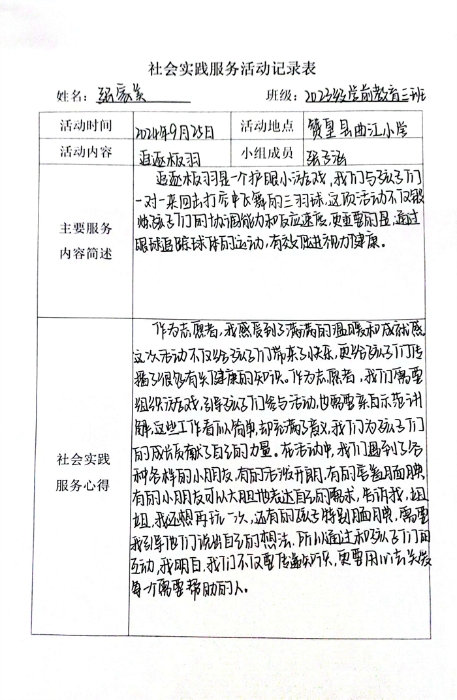 社会实践服务活动记录表
姓名：张家美 班级：2023级学前教育三班
活动时间 2024年9月25日 活动地点 贺皇县曲江小学
活动内容 追逐板羽 小组成员 张子涵
主要服务
内容简述
追逐板羽是一个护眼小游戏，我们与孩子们
一对一来回击打空中飞舞的三羽球，这项活动不仅锻
炼孩子们的协调能力和反应速度，更重要的是，通过
眼球追踪球体的运动，有效促进视力健康。
社会实践
服务心得
作为志愿者，我感受到了满满的温暖和成就感
这次活动不仅给孩子们带来了快乐，更给孩子们传
播了很多有关健康的知识。作为志愿者，我们需要
组织游戏，引导孩子们参与活动，也需要亲自示范讲
解，这些工作看似简单，却充满了意义，我们为孩子们
的成长贡献了自己的力量。在活动中，我们遇到了各
种各样的小朋友，有的活泼开朗，有的害羞腼腆，
有的小朋友可以大胆地表达自己的需求，告诉我，姐
姐，我还想再玩一次，还有的孩子特别腼腆，需要
我引导他们说出自己的想法。所以通过和孩子们的
互动，我明白，我们不仅要传递知识，更要用心去关爱
每一个需要帮助的人。